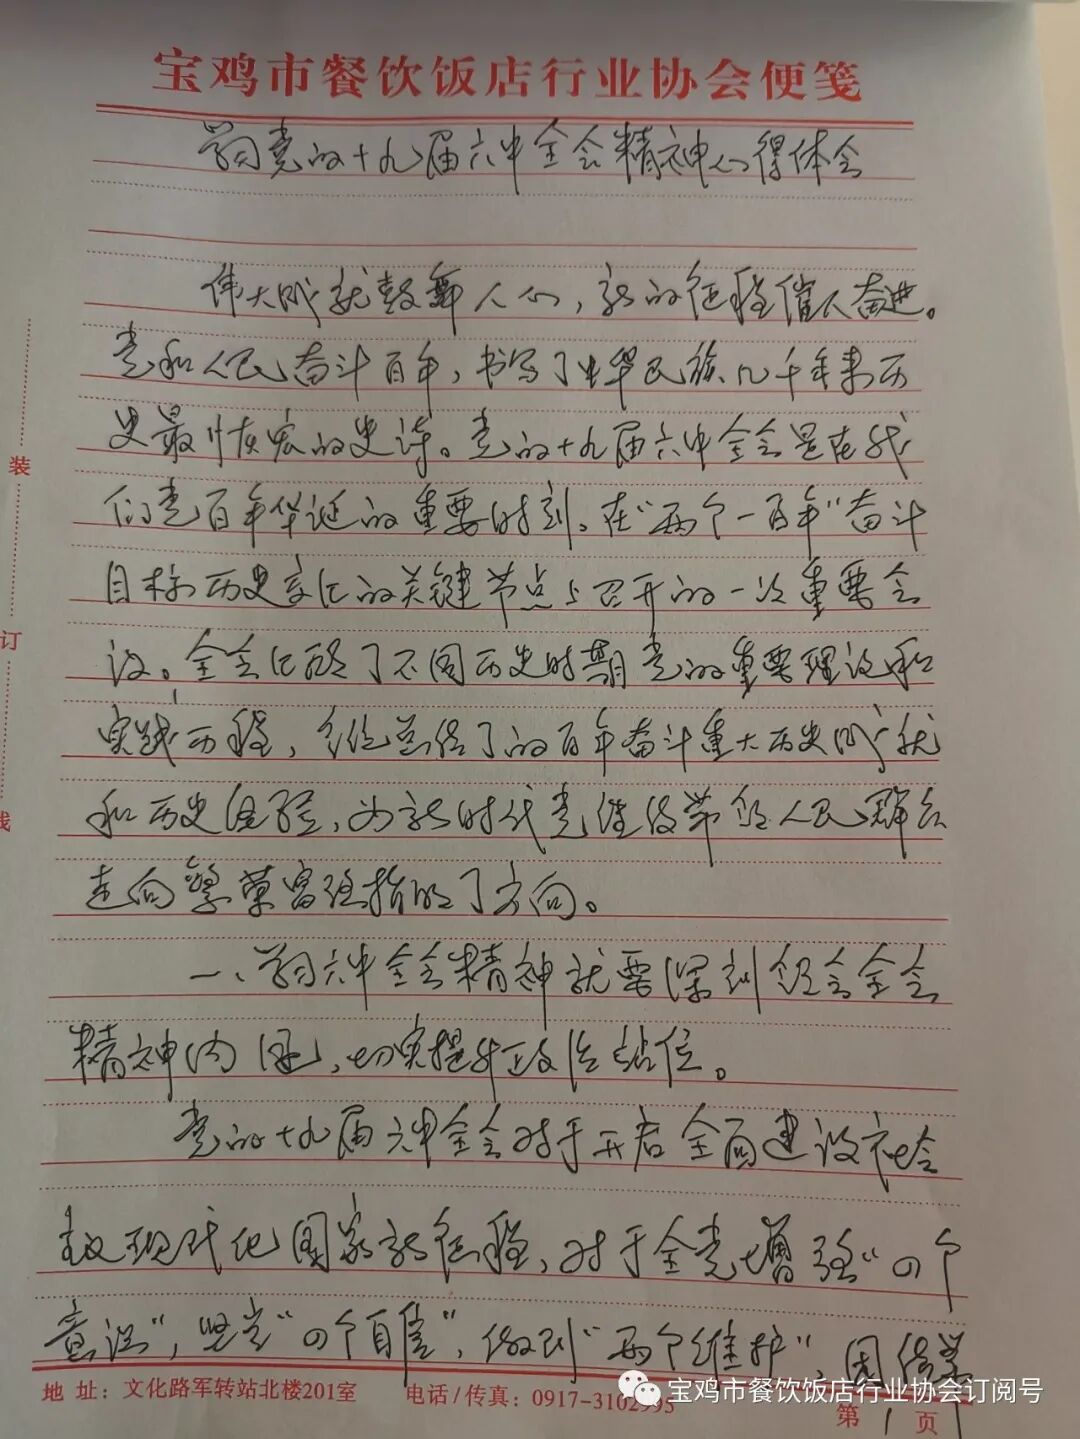 宝鸡市餐饮饭店行业协会便笺
学习党的十九届六中全会精神心得体会
伟大成就鼓舞人心，新的征程催人奋进。
党和人民奋斗百年，书写了中华民族几千年来历
史最恢宏的史诗。党的十九届六中全会是在我
们党百年华诞的重要时刻。在“两个一百年”奋斗
目标历史交汇的关键节点上召开的一次重要会
议。全会了不同历史时期党的重要理论和
实践历程，总结了的百年奋斗重大历史成就
和历史经验，为新时代党继续带领人民群众
走向繁荣富强指明了方向。
一、学习六中全会精神就要深刻领会全会
精神内涵，切实提升政治站位。
党的十九届六中全会对于开启全面建设社会
主义现代化国家新征程，对于全党增强“四个
意识”，坚定“四个自信”，做到“两个维护”，团结
装
订
线
地址：文化路军转站北楼201室 电话/传真：0917-3102995
第1页
宝鸡市餐饮饭店行业协会订阅号